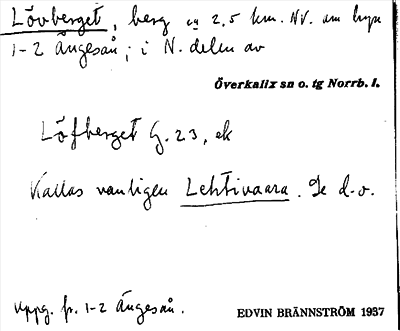 Lövberget, berg ca 2,5 km. NV. om byn
1-2 Ängeså; i N. delen av
Överkalix sn o. tg Norrb. l.
Löfberget G. 23, ek
Kallas vanligen Lehtivaara. Se d.o.
Uppg. fr. 1-2 Ängeså.
EDVIN BRÄNNSTRÖM 1937